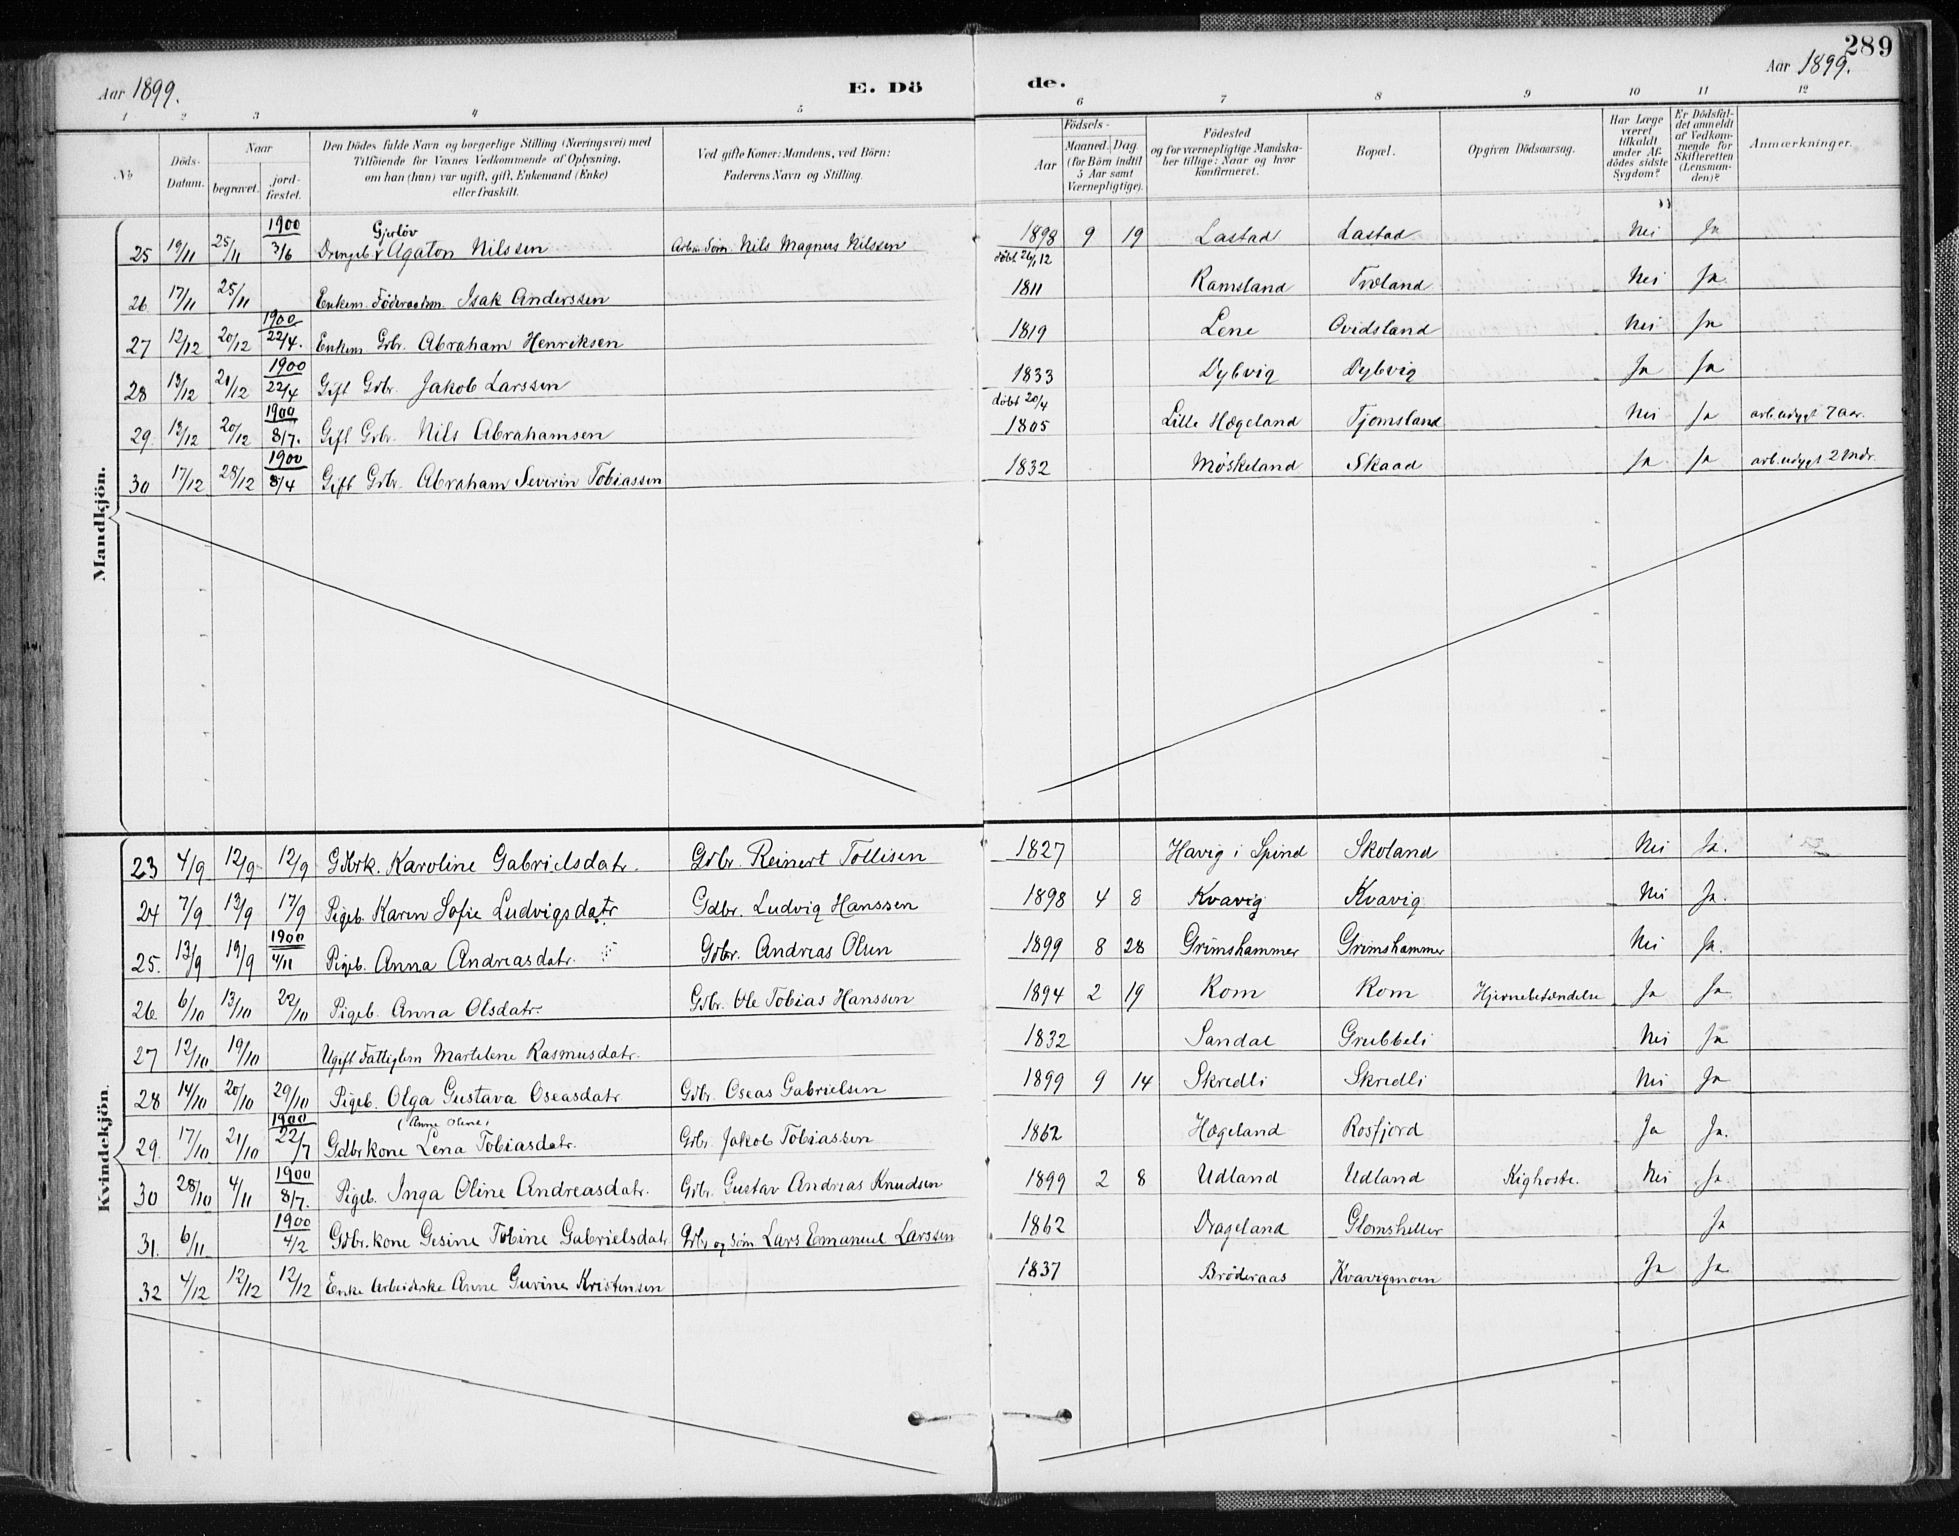 289
Aar 1899.
E. Dö
de.
Aar 1899.
1 2 3 4 5 6 7 8 9 10 11 12
No
Döds-Datum.
Naar
begravet.
jord-fæstet.
Den Dödes fulde Navn og borgerlige Stilling (Næringsvei) med
Tilföiende for Voxnes Vedkommende af Oplysning,
om han (hun) var ugift, gift, Enkemand (Enke)
eller fraskilt.
Ved gifte Koner: Mandens, ved Börn:
Faderens Navn og Stilling.
Födsels-
Aar
Maaned. Dag
(for Börn indtil
5 Aar samt
Værnepligtige).
Födested
og for værnepligtige Mandska-
ber tillige: Naar og hvor
konfirmeret.
Bopæl.
Opgiven Dödsaarsag.
Har Læge
været
tilkaldt
under Af-
dödes sidste
Sygdom?
Er Dödsfal-
det anmeldt
af Vedkom-
mende for
Skifteretten
(Lensman-
den)?
Anmærkninger.
Mandkjön.
25 19/11 25/11 1900 3/6 Drengeb. Gjerløv Agaton Nilssen Arb. Søm. Nils Magnus Nilssen 1898 9 19 Lastad Lastad Nei Ja
26 17/11 25/11 Enkem. Föderaadsm. Isak Anderssen døbt 26/1 12 1811 Ramsland Træland Nei Ja
27 12/12 20/12 1900 22/4. Enkem Gdbr. Abraham Henriksen 1819 Lene Ovidsland Nei Ja
28 13/12 21/12 1900 22/4 Gift Gdbr. Jakob Larssen 1833 Dybvig Dybvig Ja Ja
29. 13/12 20/12 1900 8/7. Gift Gdbr. Nils Abrahamsen døbt 20/4 1805 Lille Hægeland Tjomsland Nei Ja arb.udygt 7 aar.
30 17/12 28/12 1900 8/4 Gift Gdbr. Abraham Severin Tobiassen 1832 Møskeland Skaad Ja Ja arb.udygt 2 Mdr.
Kvindekjön.
23 4/9 12/9 12/9 Gdbrk. Karoline Gabrielsdatr. Gdbr. Reinert Tollisen 1827 Havig i Spind Skoland Nei Ja.
24 7/9 13/9 17/9 Pigeb. Karen Sofie Ludvigsdatr Gdbr. Ludvig Hanssen 1898 4 8 Kvavig Kvavig Nei Ja.
25. 13/9 19/9 1900 4/11 Pigeb. Anna Andreasdatr. Gdbr. Andreas Olsen 1899 8 28 Grimshammer Grimshammer Nei Ja.
26. 6/10 13/10 22/10 Pigeb. Anna Olsdatr. Gdbr. Ole Tobias Hanssen 1894 2 19 Rom Rom Hjernebetændelse Ja Ja
27 12/10 19/10 Ugift Fattiglem Martelene Rasmusdatr. 1832 Sandal Grubbeli Nei Ja
28 14/10 20/10 29/10 Pigeb. Olga Gustava Oseasdatr Gdbr. Oseas Gabrielsen 1899 9 14 Skredli Skredli Nei Ja
29. 17/10 21/10 1900 22/7 Gdbrkone Lena (Anne Oline) Tobiasdatr. Gdbr. Jakob Tobiassen 1862 Hægeland Rosfjord Ja Ja.
30 28/10 4/11 1900 8/7. Pigeb. Inga Oline Andreasdatr. Gdbr. Gustav Andreas Knudsen 1899 2 8 Udland Udland Kighoste. Nei Ja.
31. 6/11 1900 4/2 Gdbr.kone Gesine Tobine Gabrielsdatr Gdbr og Søm Lars Emanuel Larssen 1862 Drageland Glomsheller Ja
32 4/12 12/12 12/12 Enke Arbeiderske Anne Gurine Kristensen 1837 Brøderaas Kvavigmoen Ja Ja